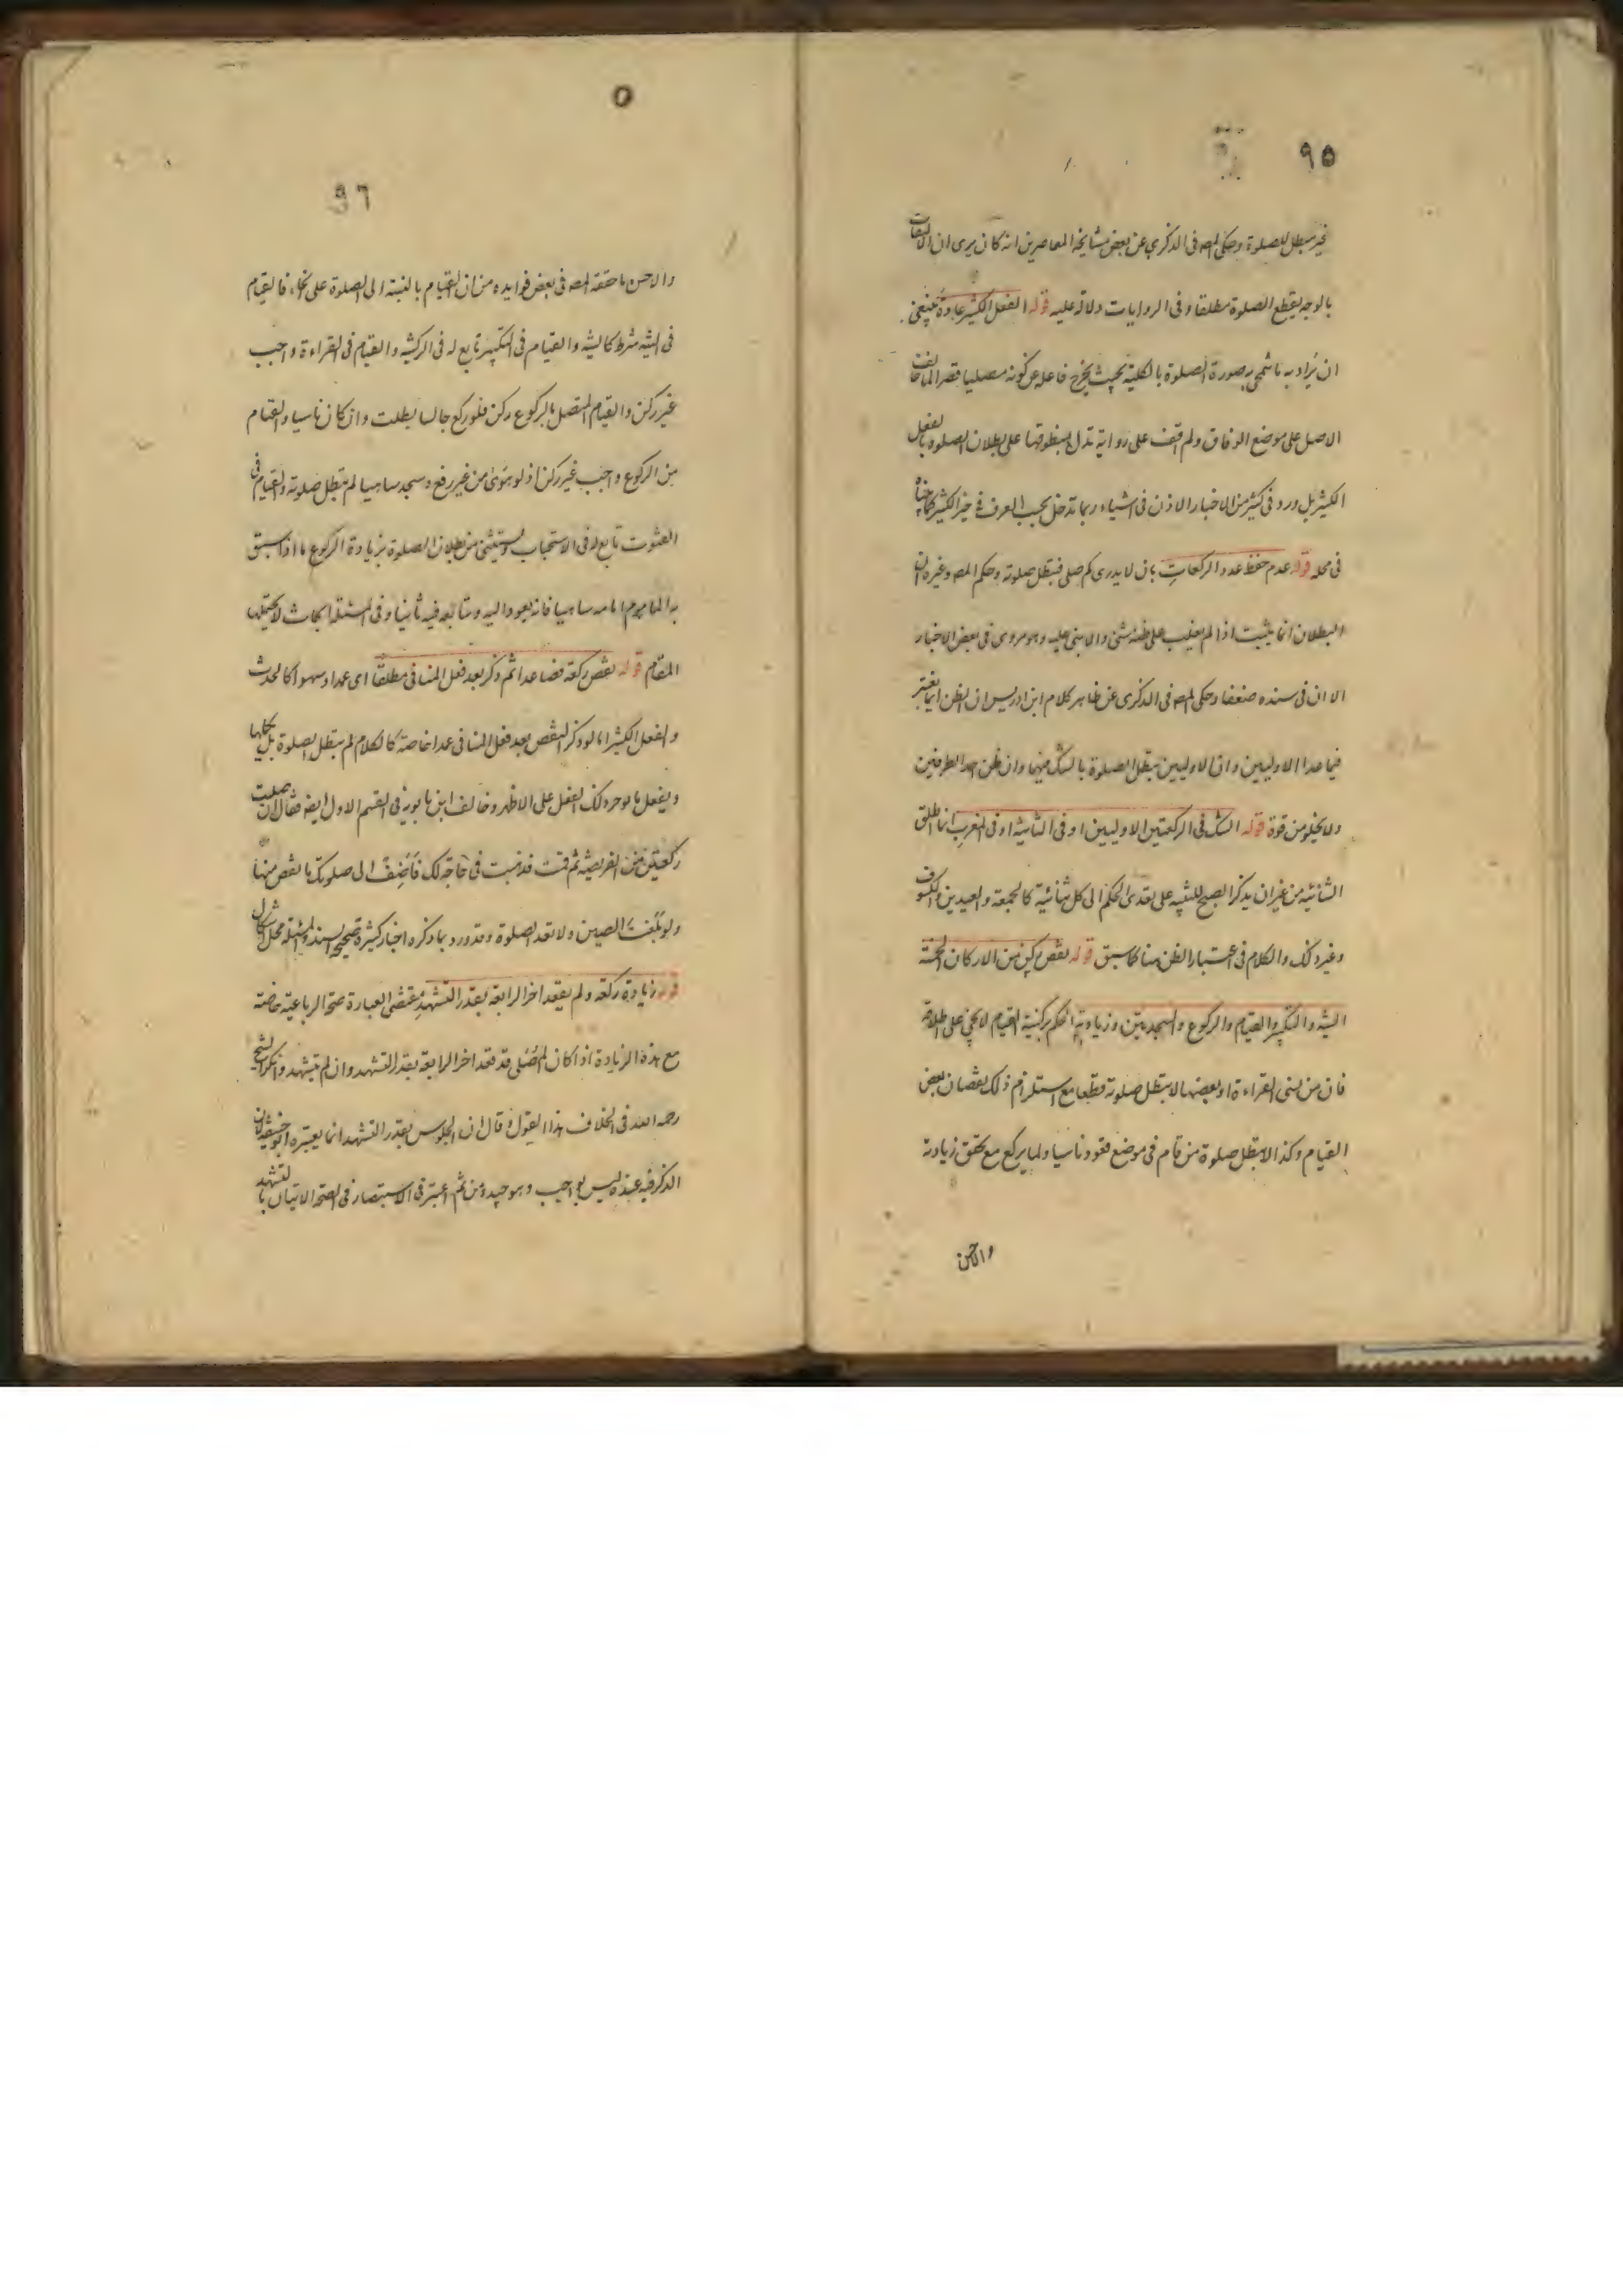 ٩٥
غير مبطل للصلوة وحكى المصه فى الذكرى عن بعض مشايخه المعاصرين انه كان يرى ان الالتفات
بالوجه يقطع الصلوة مطلقا وفى الروايات دلالة عليه قوله الفعل الكثير عادة ينبغى
ان يراد به ما تمحى به صورة الصلوة بالكلية بحيث يخرج فاعله عن كونه مصليا قصرا لما خالف
الاصل على موضع الوفاق ولم اقف على رواية تدل بمنطوقها على بطلان الصلوة بالفعل
الكثير بل ورد فى كثير من الاخبار الاذن فى اشياء ربما تدخل بحسب العرف فى حيز الكثير كما بيناه
فى محله قوله عدم حفظ عدد الركعات بان لا يدرى كم صلى فتبطل صلوته وحكم المصه وغيره ان
البطلان انما يثبت اذا لم يغلب على ظنه شئ والا بنى عليه وهو مروى فى بعض الاخبار
الا ان فى سنده ضعفا وحكى المصه فى الذكرى عن ظاهر كلام ابن ادريس ان الظن انما يعتبر
فيما عدا الاوليين وان الاوليين تبطل الصلوة بالشك فيها وان ظن احد الطرفين
ولا يخلو من قوة قوله الشك فى الركعتين الاوليين او فى الثنائية او فى المغرب انما اطلق
الثنائية من غير ان يذكر الصبح للتنبيه على تعدى الحكم الى كل ثنائية كالجمعة والعيدين والكسوف
وغير ذلك والكلام فى اعتبار الظن هنا كما سبق قوله نقص ركن من الاركان الخمسة
النية والتكبير والقيام والركوع والسجدتين وزيادته الحكم بركنية القيام لا يجئ على اطلاقه
فان من نسى القراءة او بعضها لا تبطل صلوته قطعا مع استلزام ذلك نقصان بعض
القيام وكذا لا تبطل صلوة من قام فى موضع قعود ناسيا ولما يركع مع تحقق زيادته
والاحسن
٩٦
والاحسن ما حققه المصه فى بعض فوايده من ان القيام بالنسبة الى الصلوة على انحاء فالقيام
فى النية شرط كالنية والقيام فى التكبير تابع له فى الركنية والقيام فى القراءة واجب
غير ركن والقيام المتصل بالركوع ركن فلو ركع جالسا بطلت وان كان ناسيا والقيام
من الركوع واجب غير ركن اذ لو هوى من غير رفع وسجد ساهيا لم تبطل صلوته والقيام فى
القنوت تابع له فى الاستحباب ويستثنى من بطلان الصلوة بزيادة الركوع ما اذا سبق
به الماموم امامه ساهيا فانه يعود اليه ويتابعه فيه ثانيا وفى المسئلة ابحاث لا يحتملها
المقام قوله نقص ركعة فصاعدا ثم ذكر بعد فعل المنافى مطلقا اى عمدا وسهوا كالحدث
والفعل الكثير اما لو ذكر النقص بعد فعل المنافى عمدا خاصة كالكلام لم تبطل الصلوة بل يكملها
ويفعل ما يوجبه ذلك الفعل على الاظهر وخالف ابن بابويه فى القسم الاول ايضا فقال ان صليت
ركعتين من الفريضة ثم قمت فذهبت فى حاجة لك فاضف الى صلوتك ما نقص منها
ولو بلغت الصين ولا تعد الصلوة وقد ورد بما ذكره اخبار كثيرة صحيحة السند والمسئلة محل اشكال
قوله زيادة ركعة ولم يقعد اخر الرابعة بقدر التشهد مقتضى العبارة صحة الرباعية خاصة
مع هذه الزيادة اذا كان المصلى قد قعد اخر الرابعة بقدر التشهد وان لم يتشهد وانكر الشيخ
رحمه الله فى الخلاف هذا القول وقال ان الجلوس بقدر التشهد انما يعتبره ابو حنيفة لان
الذكر فيه عنده ليس بواجب وهو جيد ومن ثم اعتبر فى الاستبصار فى الصحة الاتيان بالتشهد